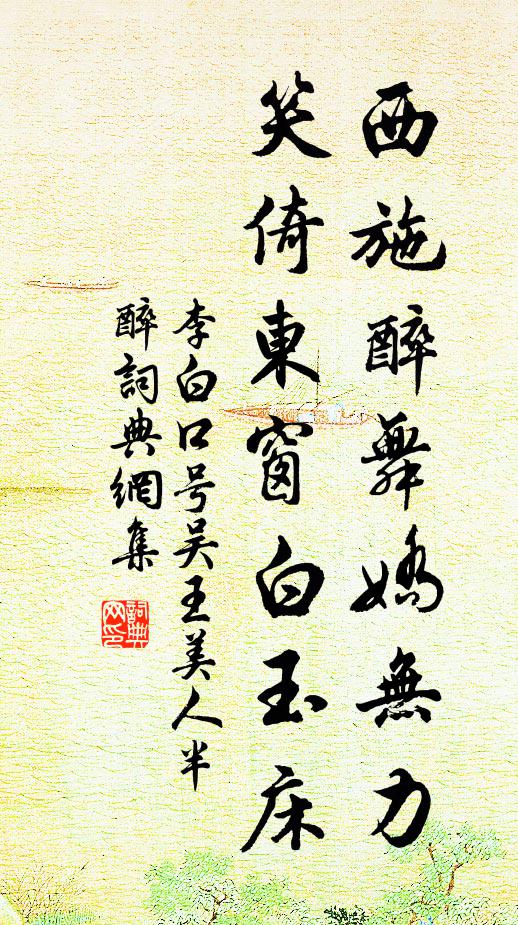 西施醉舞嬌無力
笑倚東窗白玉床
李白口号吴王美人半
醉詞典網集
詞典网印